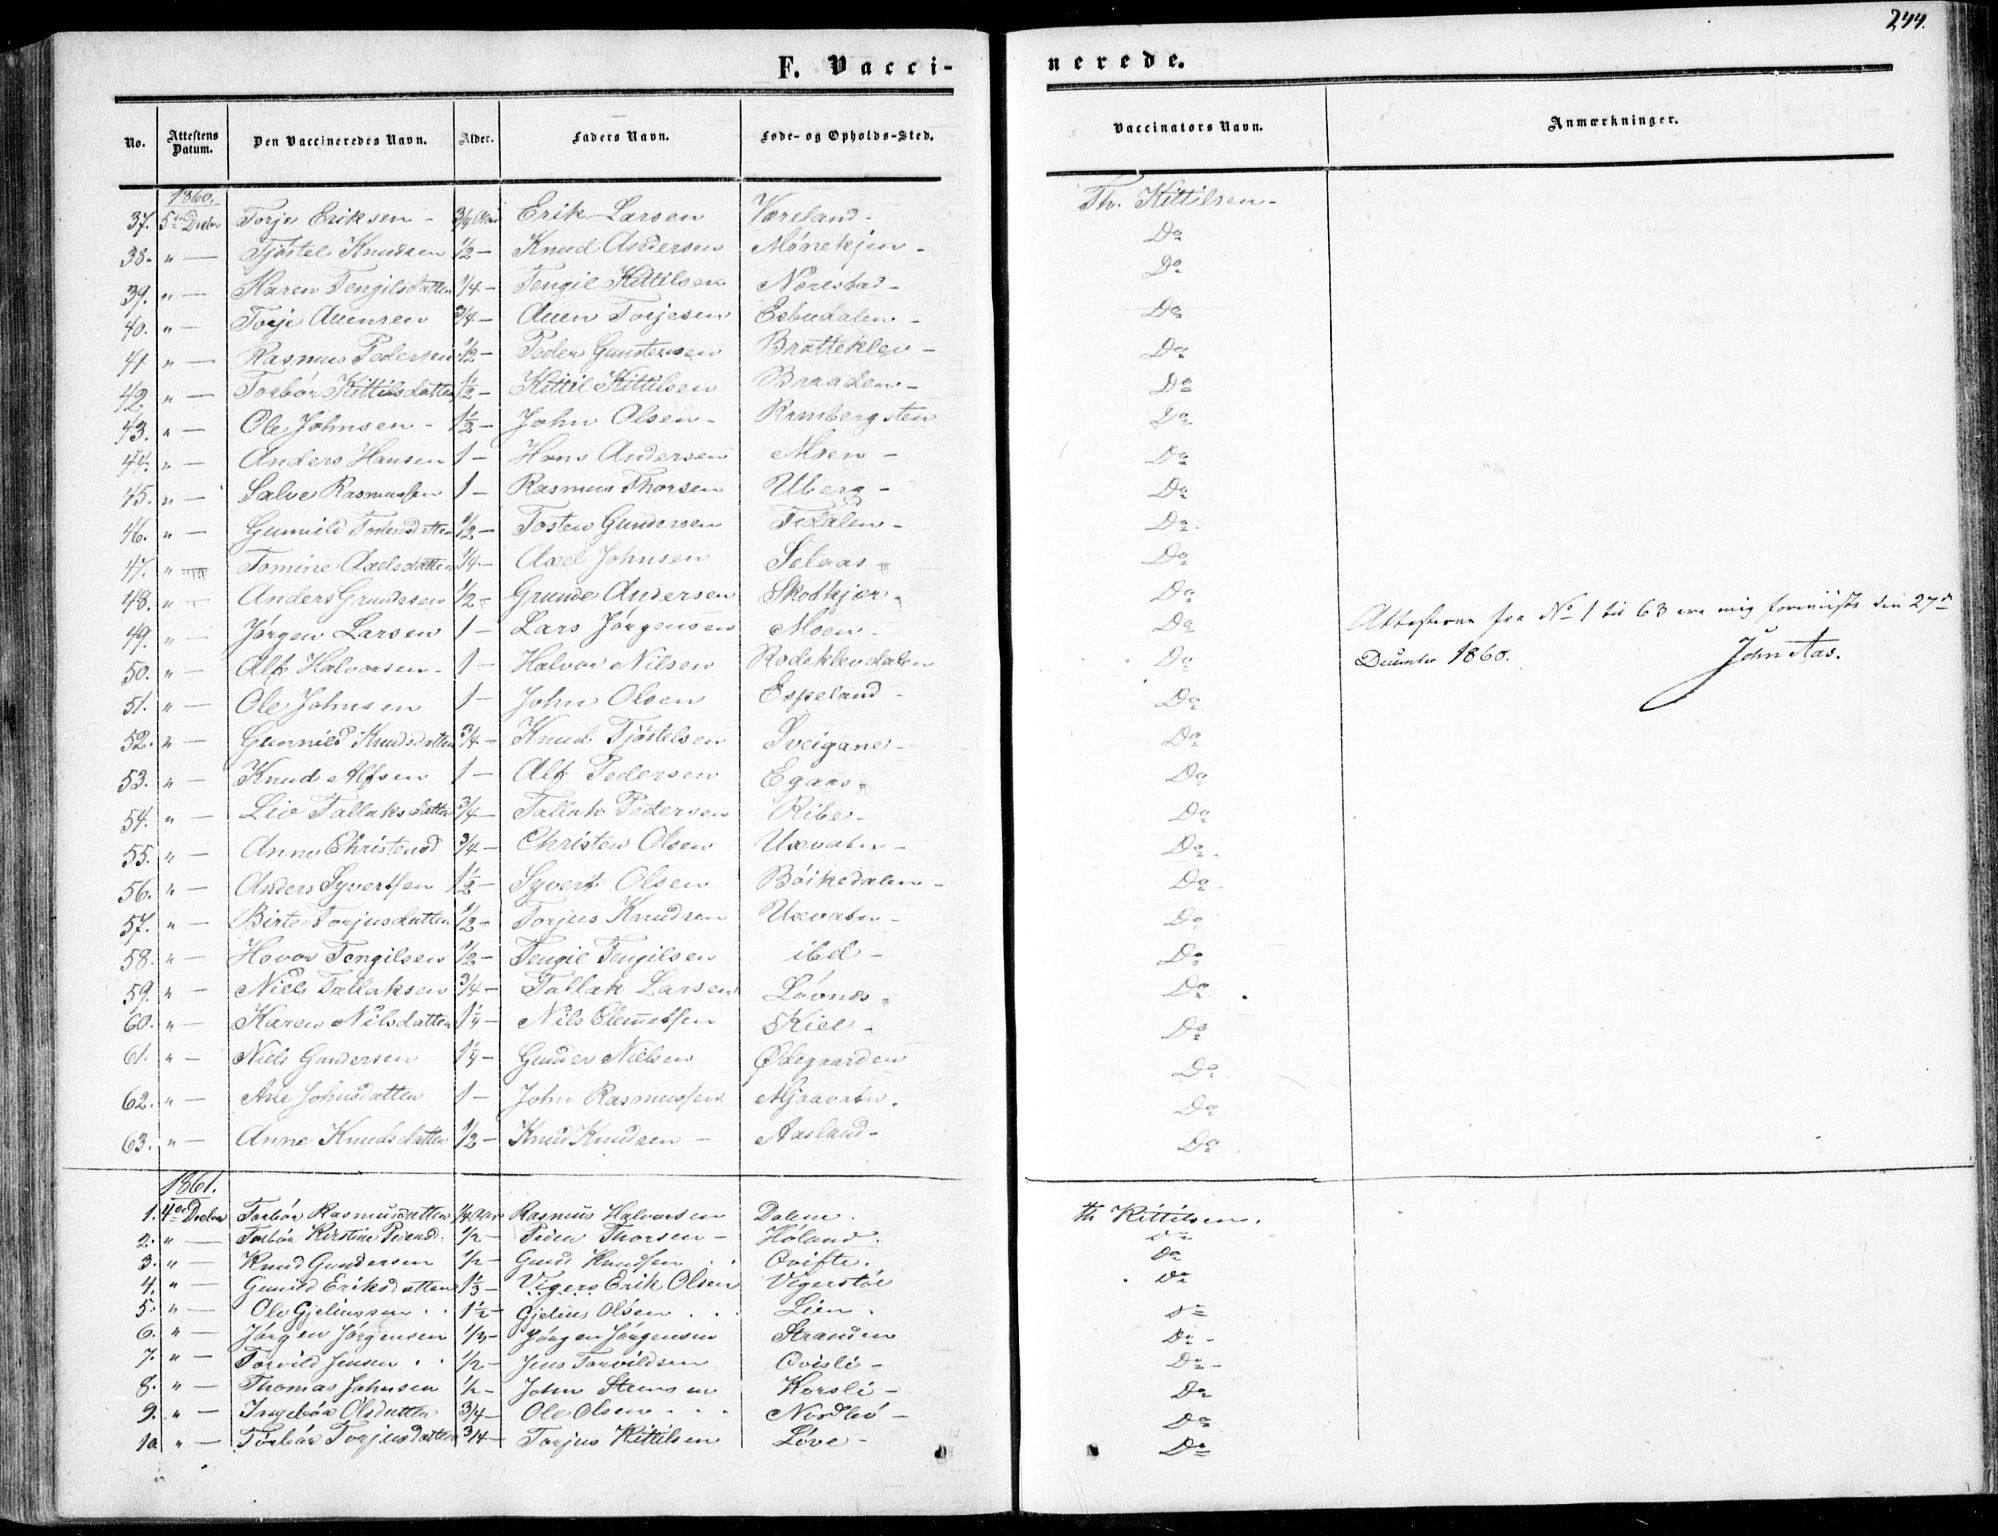 244.
F. Vacci-
nerede.
No. Attestens Datum. Den Vaccineredes Navn. Alder. Faders Navn. Føde- og Opholds-Sted. Vaccinators Navn. Anmærkninger.
1860.
37. 5te Decbr Torje Eriksen - 3/4 Erik Larsen Væreland - Th. Kittilsen -
38. " — Tjøstel Knudsen 1/2 - Knud Andersen Mønekjen - Do
39. " — Karen Tengilsdatter 1/4 - Tengil Kittilsen Norestad - Do
40. " — Torje Auensen 3/4 - Auen Torjesen Esbudalen - Do
41 " — Rasmus Pedersen 1/2 - Peder Gunstensen Bratteklev - Do
42 " — Torbør Kittilsdatter 1 1/2 - Kittil Kittilsen Braaden - Do
43. " — Ole Johnsen - 1 1/2 - John Olsen - Rambergsten Do
44. " — Anders Hansen 1 - Hans Andersen Moen - Do
45. " — Salve Rasmussen 1 - Rasmus Thorsen Uberg - Do
46. " — Gunvild Tostensdatter 1/2 - Tosten Gundersen Fidalen - Do
47. " — Tomine Axelsdatter 1/4 - Axel Johnsen Selaas - Do
48. " — Anders Grundesen 1/2 - Grunde Andersen Skotkjær - Do
49. " — Jørgen Larsen 1 - Lars Jørgensen Moen - Do
Attesterne fra No 1 til 63 ere mig foreviist den 27de
50. " — Alf Halvorsen - 1 - Halvor Nilsen Rodeklevdalen Do
December 1860. John Aas.
51. " — Ole Johnsen 1 - John Olsen Espeland - Do
52. " — Gunnild Knudsdatter 3/4 - Knud Tjøstelsen Sveigane - Do
53. " — Knud Alfsen 1 - Alf Pedersen Egaas - Do
54. " — Liv Tallaksdatter 3/4 - Tallak Pedersen Ribe - Do
55. " — Anne Christensd 3/4 - Christen Olsen Uxvatn - Do
56. " — Anders Syvertsen 1 1/2 - Syvert Olsen Bøikedalen - Do
57. " — Birte Torjusdatter 1/2 - Torjus Knudsen Uxvatn - Do
58. " — Hovor Tengilsen 1/2 - Tengil Tengilsen ibd - Do
59. " — Niels Tallaksen 3/4 - Tallak Larsen Løvnes - Do
60. " — Karen Nilsdatter 1 1/4 - Nils Clemetsen Kiel - Do
61. " — Niels Gundersen 1 1/4 - Gunder Nielsen Ødegaarden Do
62. " — Ane Johnsdatter 1 - John Rasmussen Mjaavatn. Do
63. " — Anne Knudsdatter 1/2 - Knud Knudsen - Aasland - Do
1861.
1. 4de Decbr Torbør Rasmusdatter Rasmus Halvorsen Dalene. Th Kittilsen.
2. " — Torbør Kirstine Pedersd. 1/2 - Peder Thorsen - Høland. Do
3. " — Knud Gundersen 1/2 - Knudsen Qvifte. Do
4. " — Gunild Eriksdatter 1 1/3 - Vigers Erik Olsen Vigerstøl Do
5. " — Ole Gjeliussen 1 1/2 - Gjelius Olsen Lien. Do
6. " — Jørgen Jørgensen 1/3 - Jørgen Jørgensen Stranden Do -
7. " — Torvild Jensen 1/2 - Jens Torvildsen Qvisli - Do -
8. " — Thomas Johnsen 1/2 - John Korsli - Do
9. " — Ingebør Olsdatter 3/4 - Ole Olsen Nordbø - Do
10 " — Torbør Torjusdatter 3/4 - Torjus Kittilsen Løve - Do